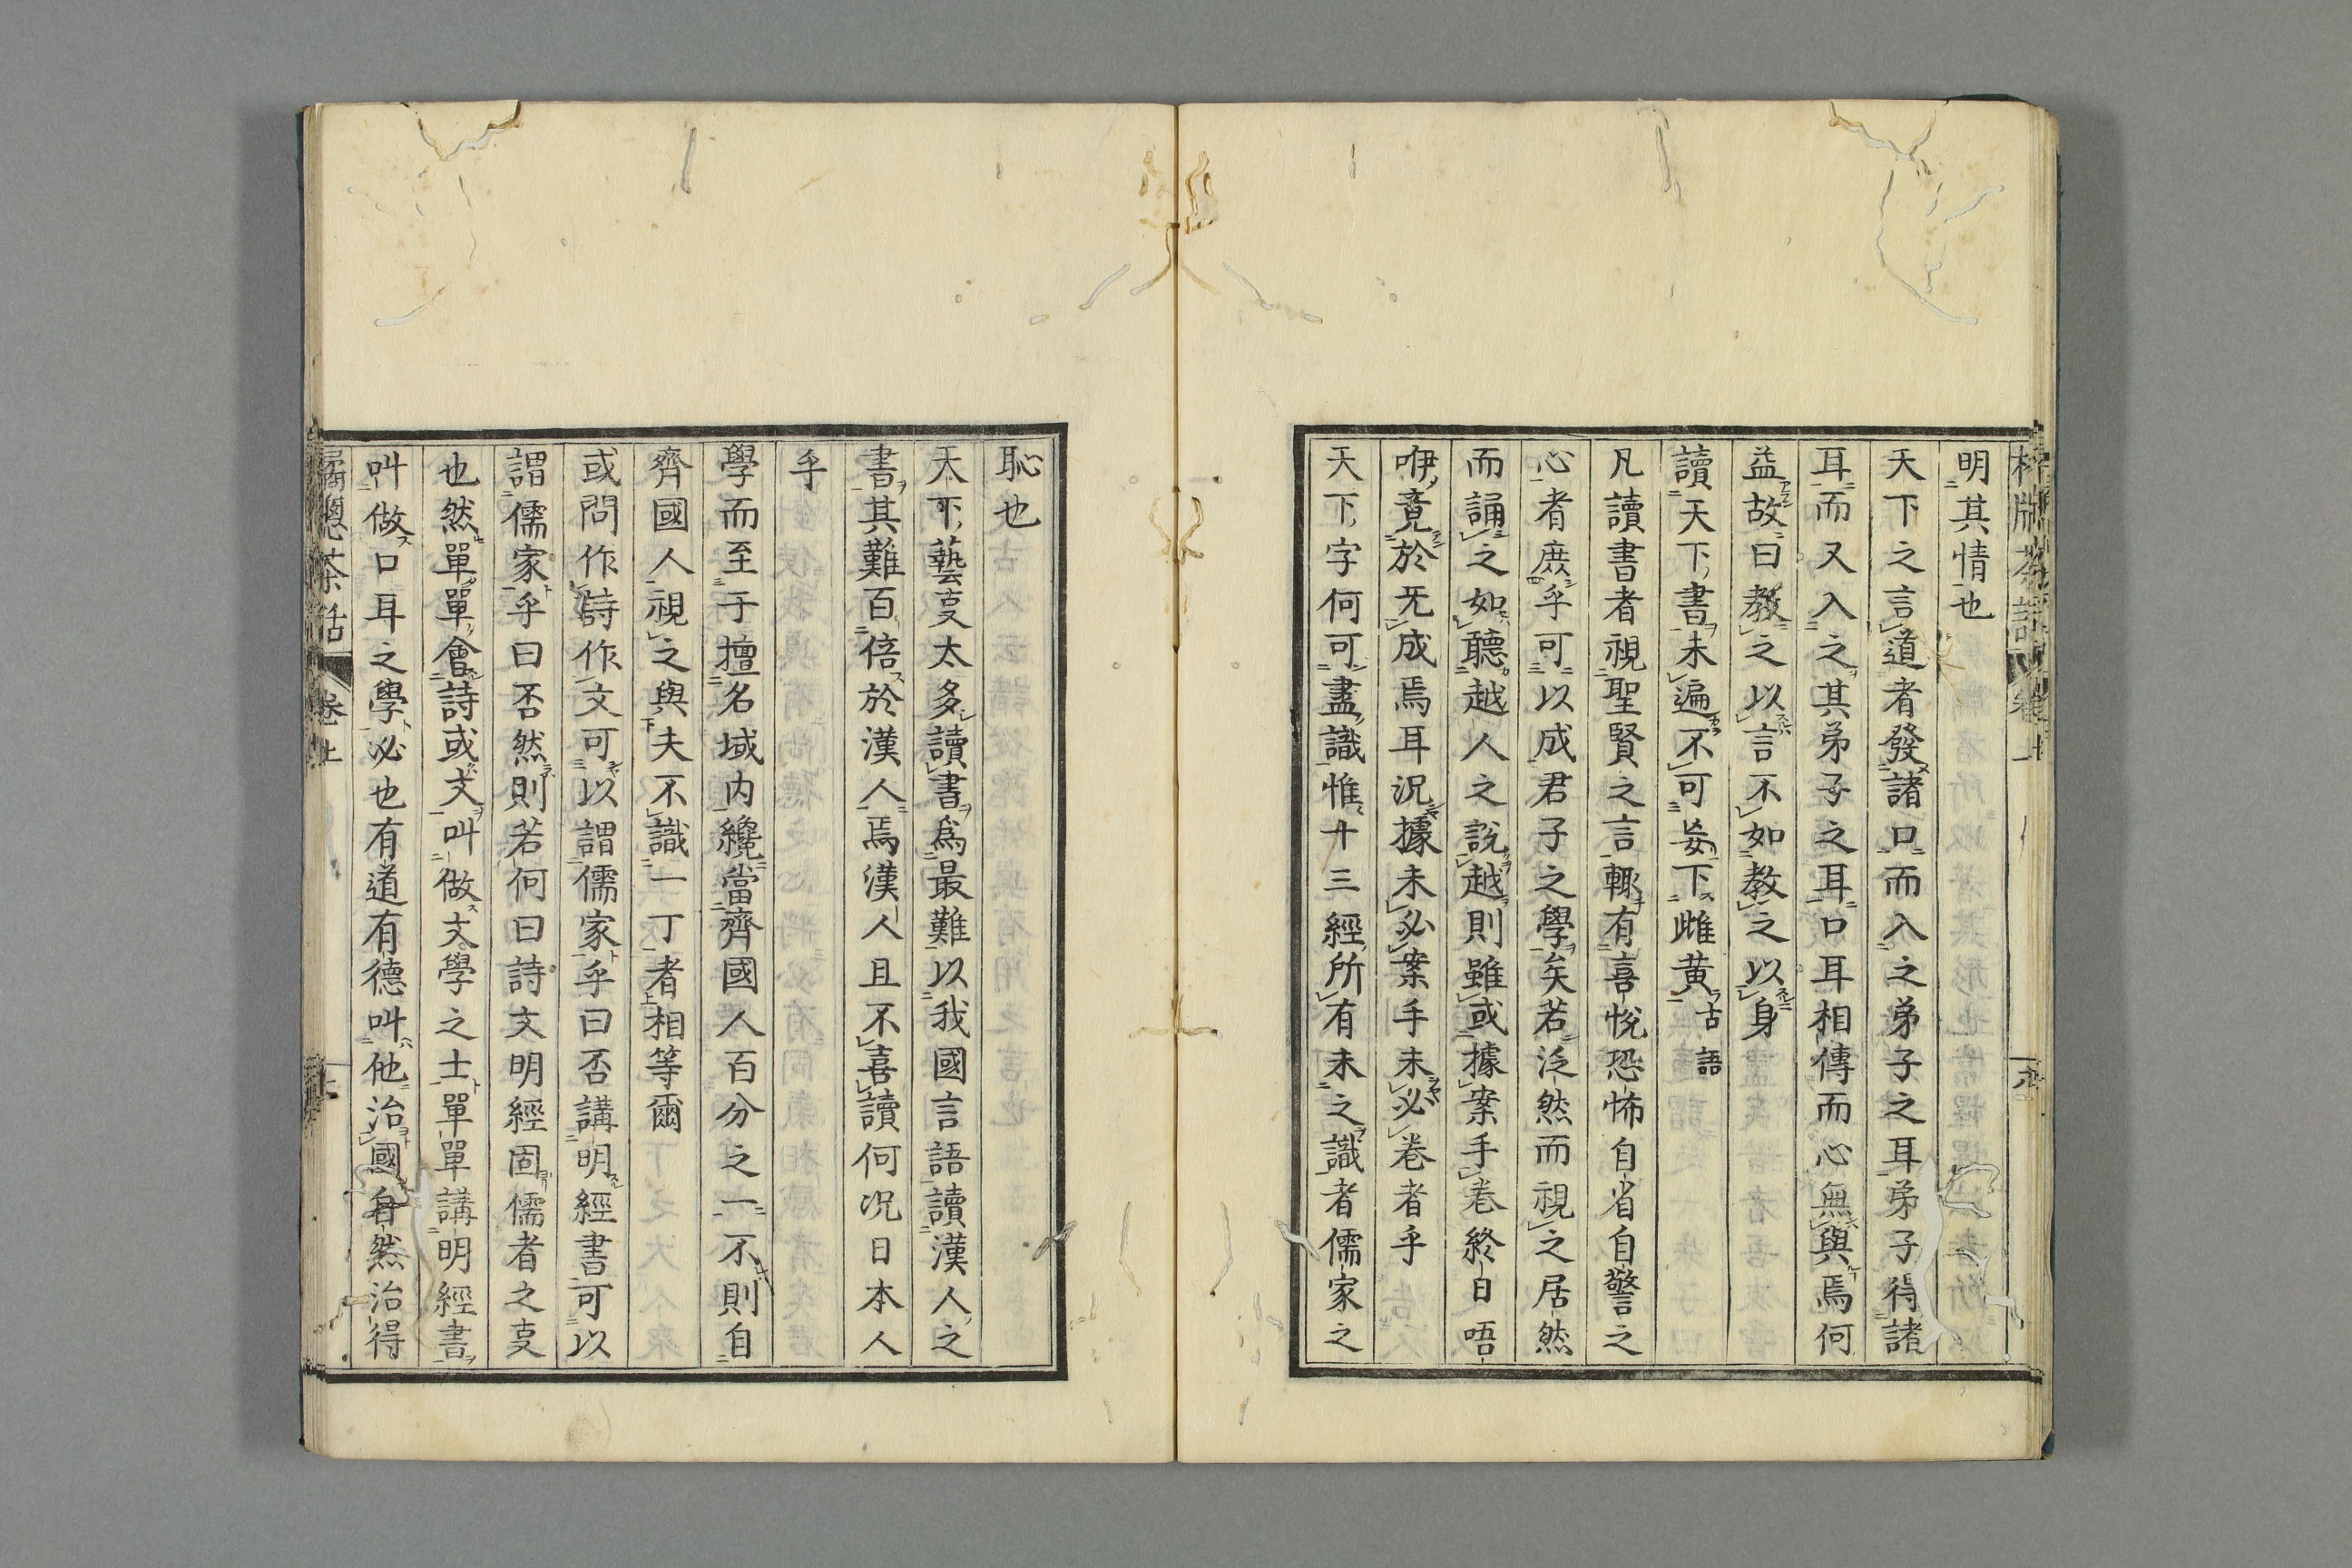 明其情也
天下之言道者發諸口而入之弟子之耳弟子得諸
耳而又入之其弟子之耳口耳相傳而心無與焉何
益故曰教之以言不如教之以身
讀天下書未遍不可妄下雌黄古語
凡讀書者視聖賢之言輙有喜悅恐怖自省自警之
心者庶乎可以成君子之學矣若泛然而視之居然
而誦之如聽越人之說越則雖或據案手卷終日唔
咿竟於无成焉耳況據未必案手未必卷者乎
天下字何可盡識惟十三經所有未之識者儒家之
恥也
天下藝叓太多讀書爲最難以我國言語讀漢人之
書其難百倍於漢人焉漢人且不喜讀何况日本人
乎
學而至于擅名域内纔當齊國人百分之一不則自
齊國人視之與夫不識一丁者相等爾
或問作詩作文可以謂儒家乎曰否講明經書可以
謂儒家乎曰否然則若何曰詩文明經固儒者之叓
也然單單會詩或文叫做文學之士單單講明經書
叫做口耳之學必也有道有德叫他治國自然治得
窻茶話 卷上